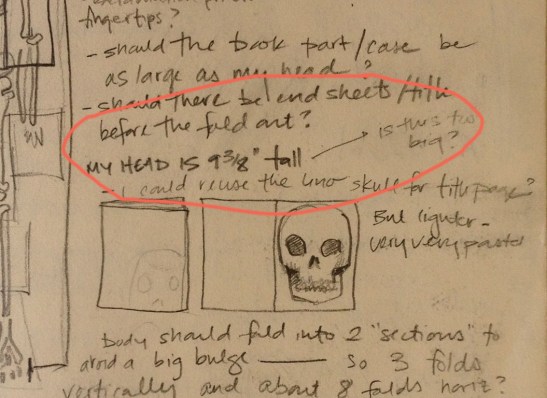 fingertips?
- should the book part/case be
as large as my head?
- should there be end sheets/title
before the fold out?
MY HEAD IS 9 3/8" tall
is this too
big?
- I could reuse the lino skull for title page?
But lighter -
very very pastel
body should fold into 2 "sections" to
avoid a big bulge — so 3 folds
vertically and about 8 folds horiz?